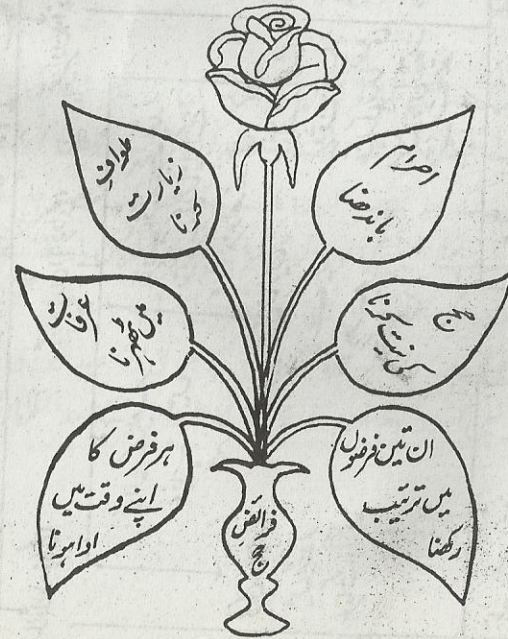 احرام
باندھنا
طواف
زیارت
کرنا
حج
کی نیت کرنا
عرفات
میں ٹھہرنا
ان تین فرضوں
میں ترتیب
رکھنا
ہر فرض کا
اپنے وقت میں
ادا ہونا
فرائض
حج